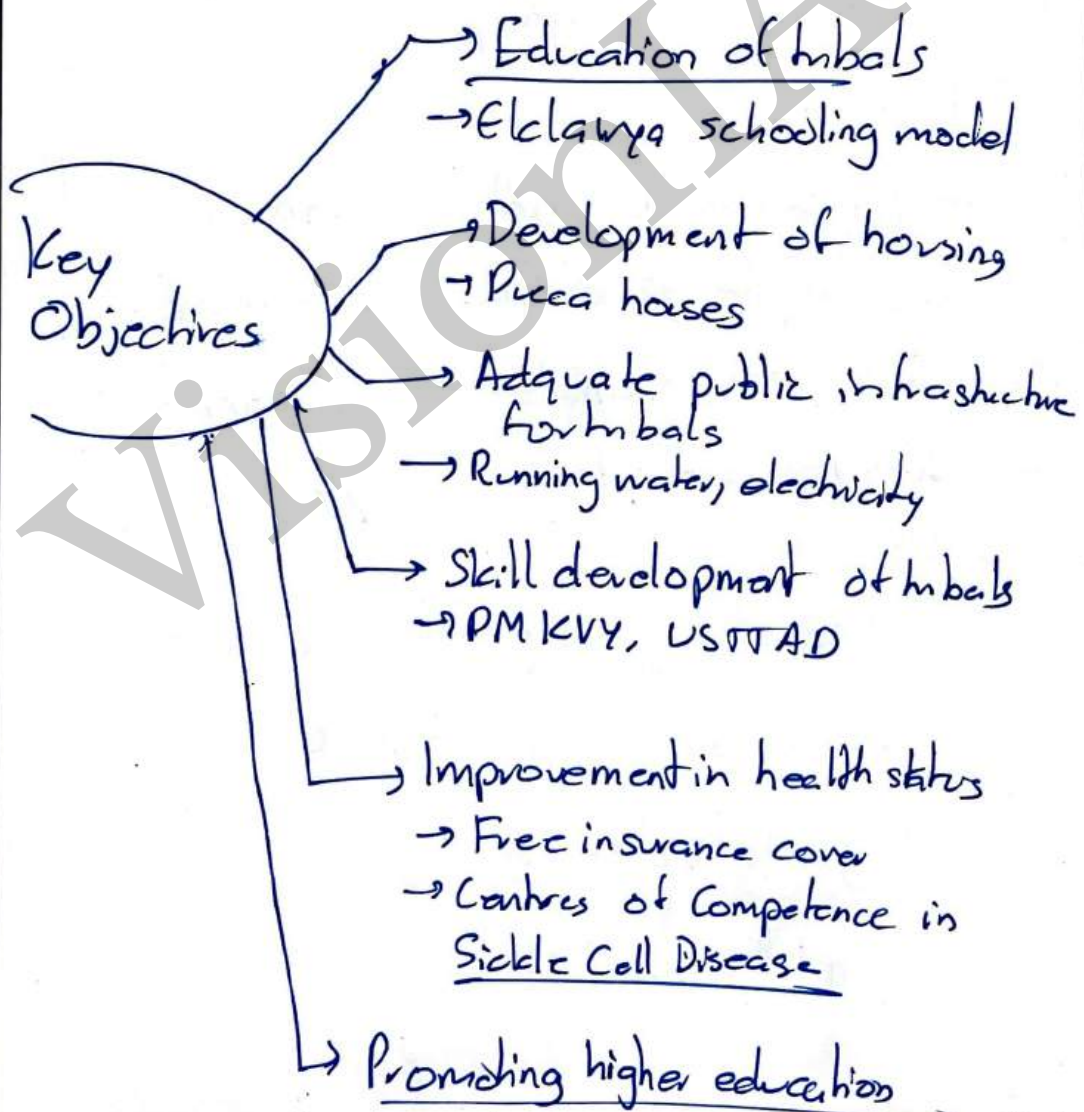 Key
Objectives
→ Education of tribals
→ Eklavya schooling model
→ Development of housing
→ Pucca houses
→ Adquate public infrastructure
for tribals
→ Running water, electricity
→ Skill development of tribals
→ PMKVY, USTTAD
→ Improvement in health status
→ Free insurance cover
→ Centres of Competence in
Sickle Cell Disease
→ Promoting higher education
VisionIA